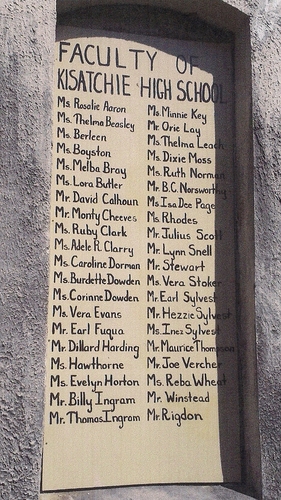 FACULTY OF
KISATCHIE HIGH SCHOOL
Ms. Rosalie Aaron
Ms. Thelma Beasley
Ms. Berleen
Ms. Boyston
Ms. Melba Bray
Ms. Lora Butler
Mr. David Calhoun
Mr. Monty Cheeves
Ms. Ruby Clark
Ms. Adele R. Clarry
Ms. Caroline Dorman
Ms. Burdette Dowden
Ms. Corinne Dowden
Ms. Vera Evans
Mr. Earl Fuqua
Mr. Dillard Harding
Ms. Hawthorne
Ms. Evelyn Horton
Mr. Billy Ingram
Mr. Thomas Ingram
Ms. Minnie Key
Mr. Orie Lay
Ms. Thelma Leach
Ms. Dixie Moss
Ms. Ruth Norman
Mr. B.C. Norsworthy
Ms. Isa Dee Page
Ms. Rhodes
Mr. Julius Scott
Mr. Lynn Snell
Mr. Stewart
Ms. Vera Stoker
Mr. Earl Sylvest
Mr. Hezzie Sylvest
Ms. Inez Sylvest
Mr. Maurice Thompson
Mr. Joe Vercher
Ms. Reba Wheat
Mr. Winstead
Mr. Rigdon